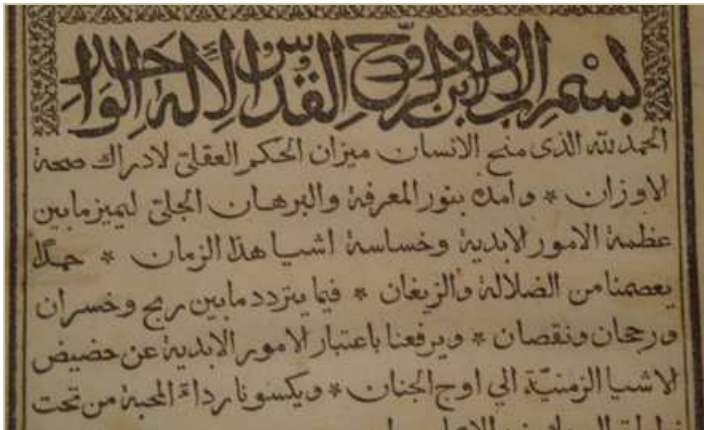 بسم الاب والابن والروح القدس الاله الواحد
الحمد لله الذى منح الانسان ميزان الحكم العقلى لادراك صحة
الاوزان * وامده بنور المعرفة والبرهان الجلى ليميز مابين
عظمة الامور الابدية وخساسة اشيا هذا الزمان * حمدًا
يعصمنا من الضلالة والزيغان * فيما يتردد مابين ربح وخسران
ورجحان ونقصان * ويرفعنا باعتبار الامور الابدية عن حضيض
الاشيا الزمنيّة الي اوج الجنان * ويكسونا رداة المحبة من تحت